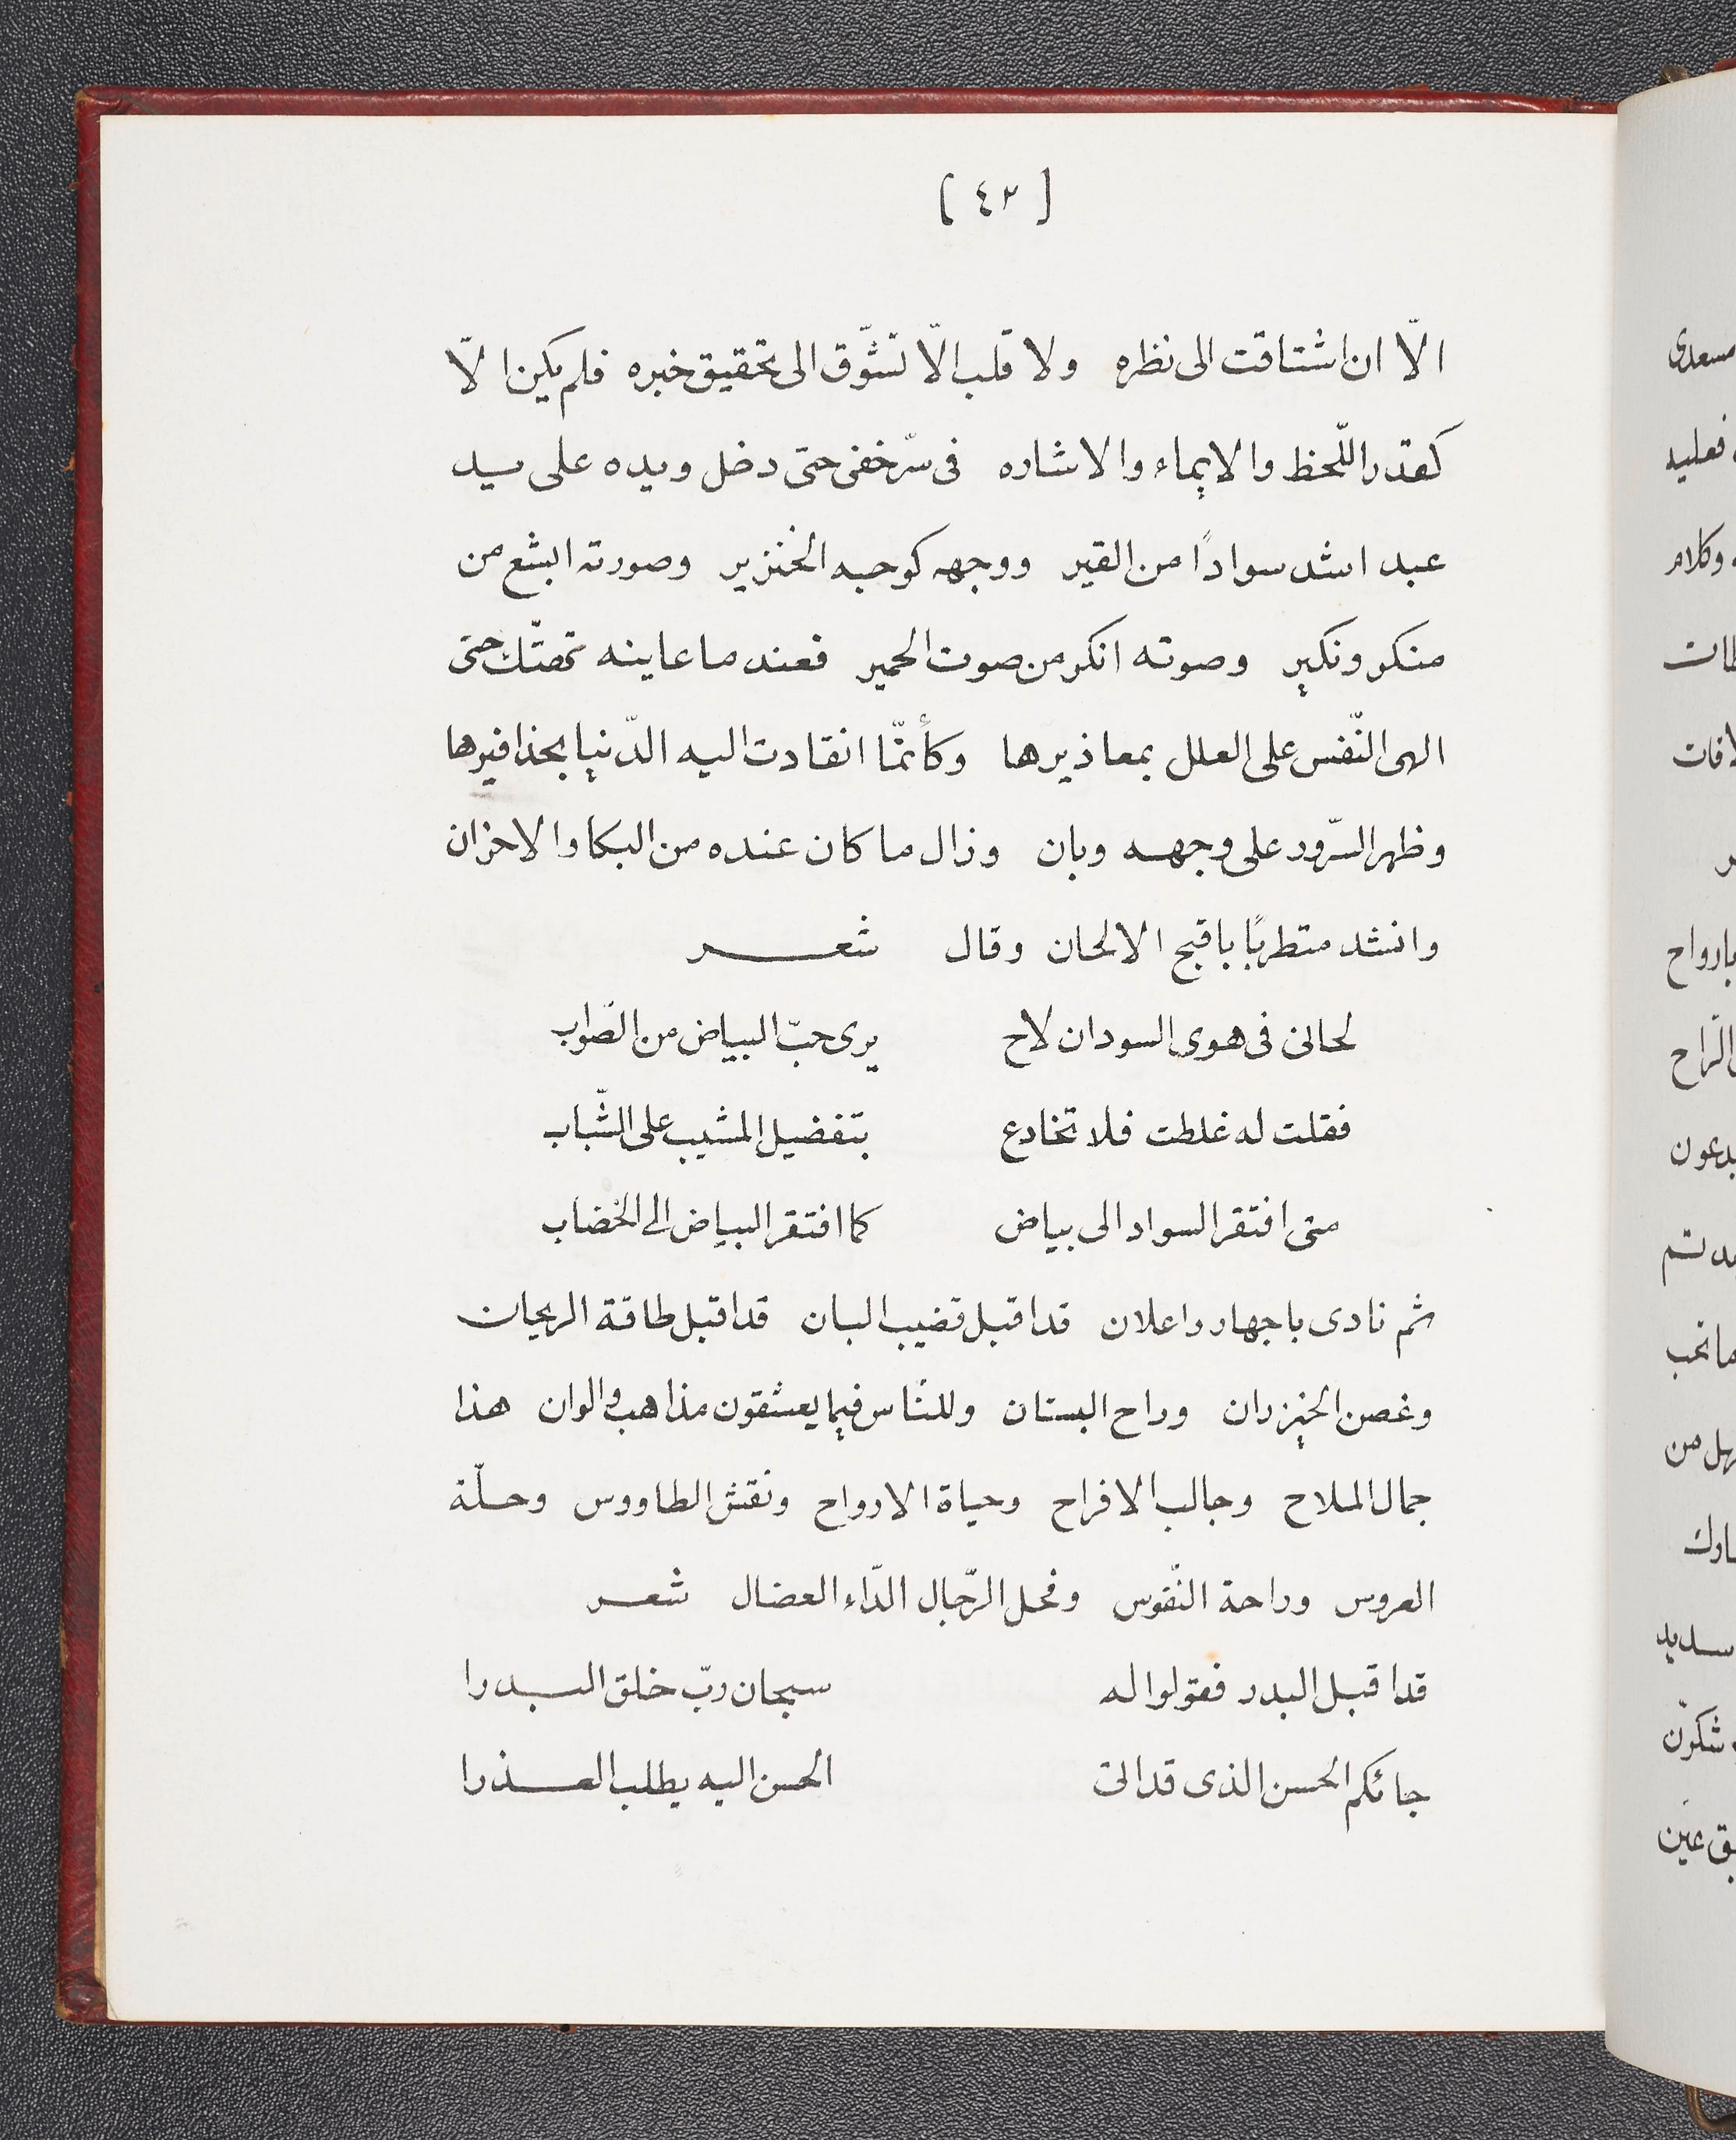 [ ٤٣ ]
الّا ان اشتاقت الى نظره ولا قلب الّا تشّوق الى تحقيق خبره فلم يكن الّا
كقدر اللّحظ والايماء والاشاره فى سرّ خفى حتى دخل ويده على يد
عبد اشد سوادًا من القير ووجهه كوجه الخنزير وصورته ابشع من
منكر ونكير وصوته انكر من صوت الحمير فعند ما عاينه حتى
الهى النّفس على العلل بمعاذيرها وكأنمّا انقادت اليه الدّنيا بحذافيرها
وظهر السّرور على وجهه وبان وزال ما كان عنده من البكا والاحزان
وانشد متطربًا باقبح الالحان وقال شعر
لحانى فى هوى السودان لاح يرى حبّ البياض من الصّواب
فقلت له غلطت فلا تخادع بتفضيل المشيب على الشّباب
متى افتقر السواد الى بياض كما افتقر البياض الى الخضاب
ثم نادى باجهار واعلان قد اقبل قضيب البان قد اقبل طاقة الريحان
وغصن الخيزران وراح البستان وللنّاس فيما يعشقون مذاهب والوان هذا
جمال الملاح وجالب الافراح وحياة الارواح ونقش الطاووس وحلّة
العروس وراحة النّفوس وفحل الرّجال الدّاء العضال شعر
قد اقبل البدر فقولوا له سبحان ربّ خلق البدرا
جائكم الحسن الذى قد اتى الحسن اليه يطلب العذرا
مسعدى
فعليه
وكلام
بارواح
الرّاح
يدعون
سديد
عين